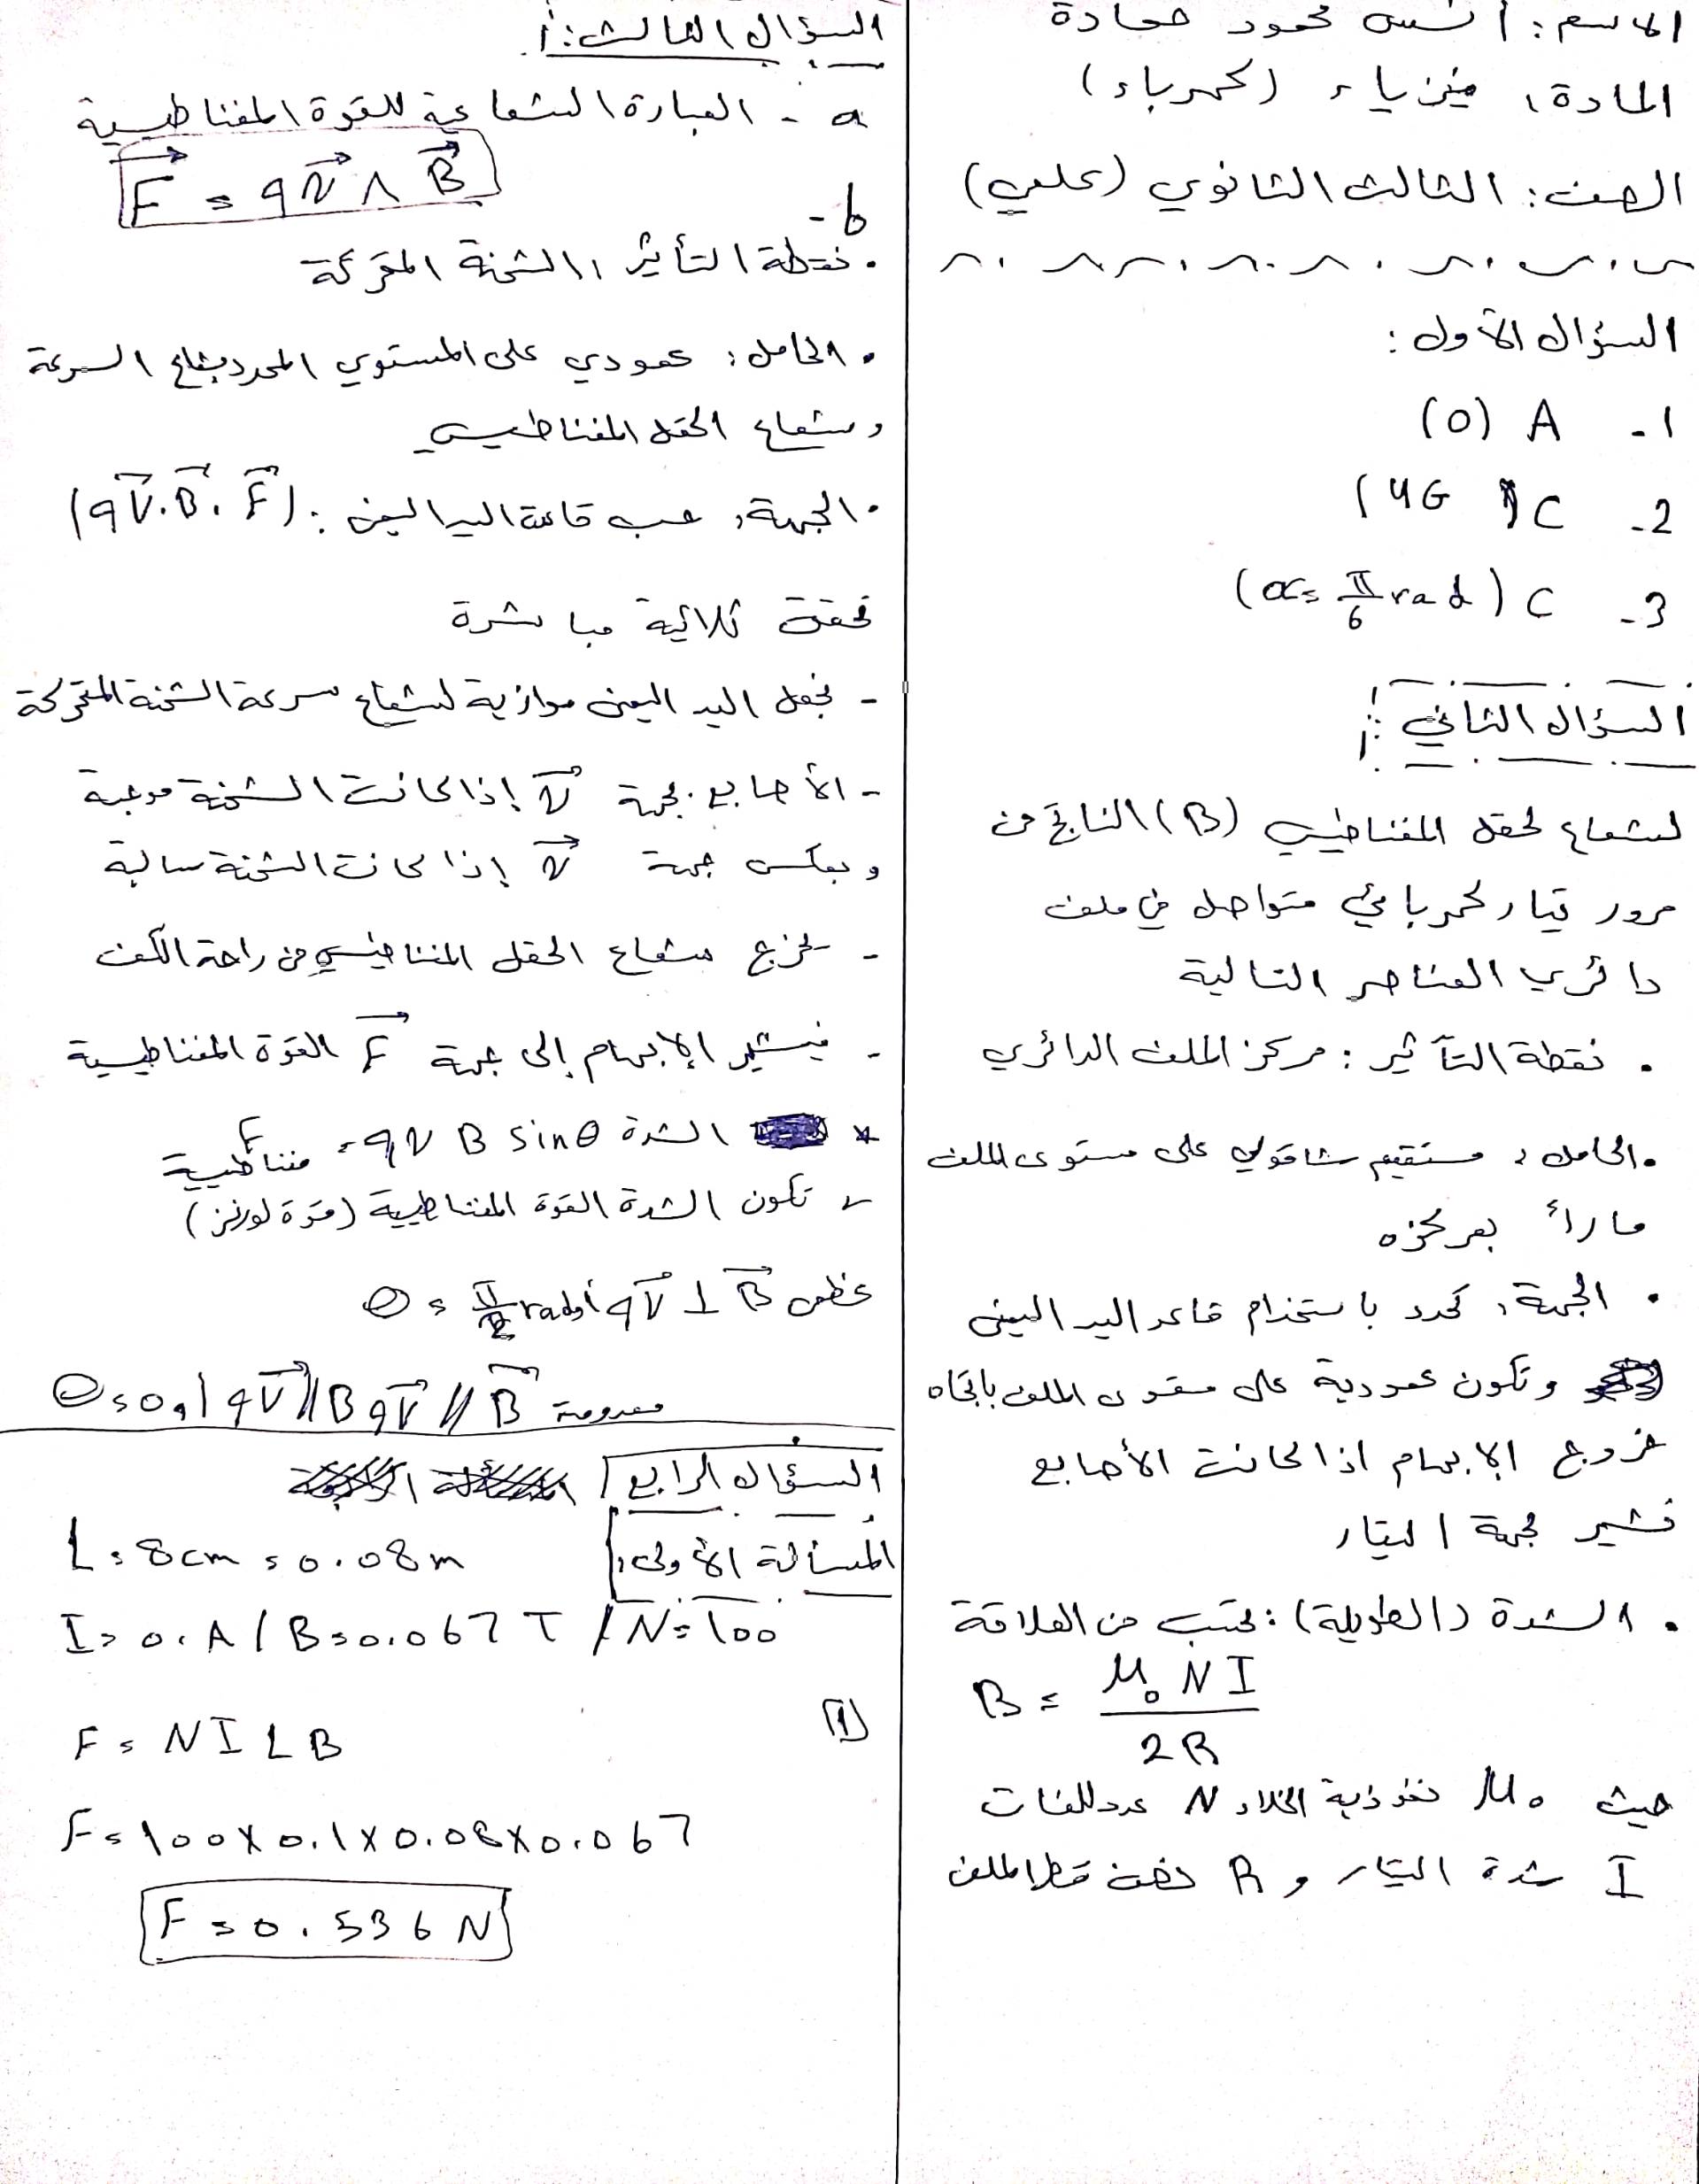 الاسم: أنس محمود حمادة
المادة: فيزياء (كهرباء)
الصف: الثالث الثانوي (علمي)
السؤال الأول:
1- A (0)
2- C (4G)
3- C (α = π/6 rad)
السؤال الثاني:
لشعاع لحقل المغناطيسي (B) الناتج عن
مرور تيار كهربائي متواصل في ملف
دائري العناصر التالية
• نقطة التأثير: مركز الملف الدائري
• الحامل: مستقيم شاقولي على مستوى الملف
ماراً بمركزه
• الجهة: تحدد باستخدام قاعد اليد اليمنى
وتكون عمودية على مستوى الملف باتجاه
خروج الإبهام اذا كانت الأصابع
تشير لجهة التيار
• الشدة (الطويلة): تحسب من العلاقة
B = μ₀ N I / 2R
حيث μ₀ نفوذية الخلاء N عدد اللفات
I شدة التيار و R نصف قطر الملف
السؤال الثالث:
a - العبارة الشعاعية للقوة المغناطيسية
F⃗ = q v⃗ ∧ B⃗
b -
• نقطة التأثير: الشحنة المتحركة
• الحامل: عمودي على المستوي المحدد بشعاع السرعة
وشعاع الحقل المغناطيسي
• الجهة: حسب قاعدة اليد اليمنى: (qV⃗. B⃗. F⃗)
تحقق ثلاثية مباشرة
- نجعل اليد اليمنى موازية لشعاع سرعة الشحنة المتحركة
- الأصابع بجهة v⃗ إذا كانت الشحنة موجبة
وبعكس جهة v⃗ إذا كانت الشحنة سالبة
- يخرج شعاع الحقل المغناطيسي من راحة الكف
- فيشير الإبهام إلى جهة F⃗ القوة المغناطيسية
* الشدة F مغناطيسية = qvB sinθ
تكون الشدة القوة المغناطيسية (قوة لورنز)
عظمى qV⃗ ⊥ B⃗ أو θ = π/2 rad
معدومة qV⃗ // B qV⃗ // B⃗ | θ = 0
السؤال الرابع
المسألة الأولى: L = 8cm = 0.08m
I = 0. A / B = 0.067 T / N = 100
1)
F = N I L B
F = 100 × 0.1 × 0.08 × 0.067
F = 0.536 N